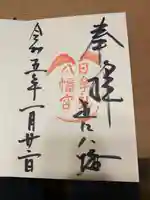 奉拝
八幡
八幡宮
令和五年一月廿二日